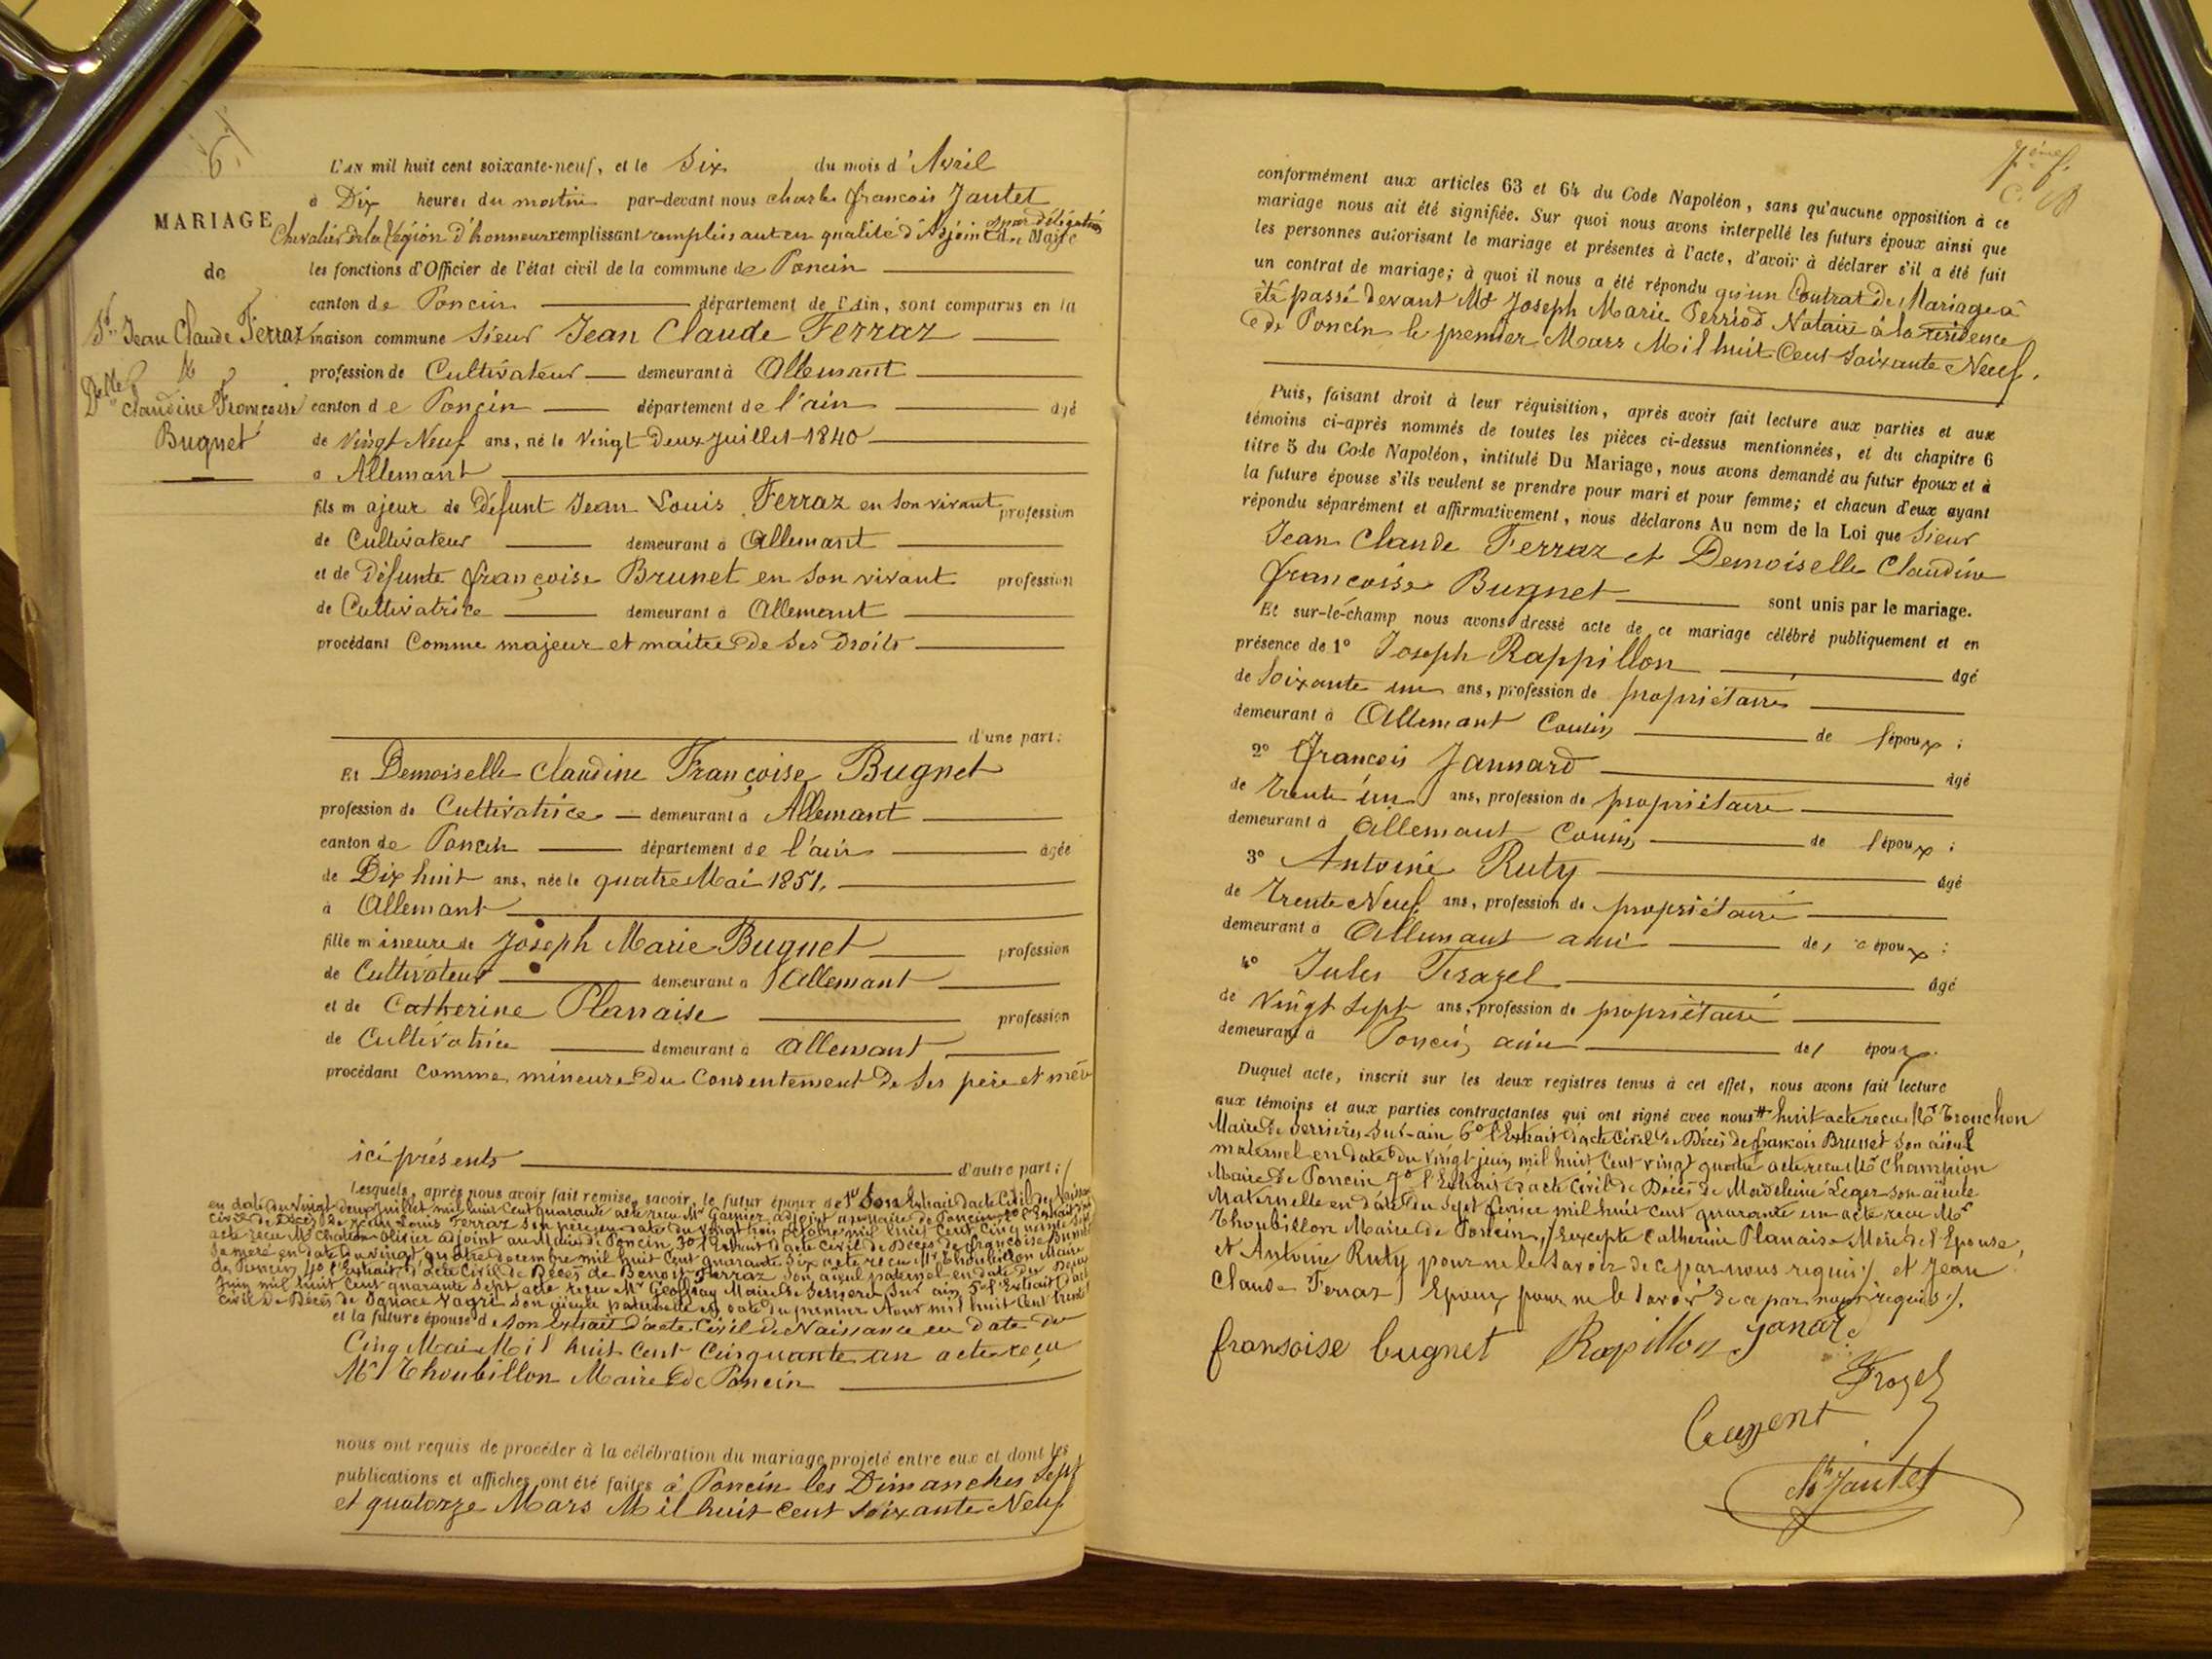 6
MARIAGE
de
Sr. Jean Claude Ferraz
&
Delle Claudine Françoise
Bugnet
L'AN mil huit cent soixante-neuf, et le Six du mois d'Avril
à Dix heures du matin par-devant nous charles françois Jautet
Chevalier de la Légion d'honneur remplissant en qualité d'Adjoint par délégation du Maire
les fonctions d'Officier de l'état civil de la commune de Poncin
canton de Poncin département de l'Ain, sont comparus en la
maison commune Sieur Jean Claude Ferraz
profession de Cultivateur demeurant à Allemant
canton de Poncin département de l'ain âgé
de Vingt Neuf ans, né le Vingt deux Juillet 1840
à Allemant
fils majeur de Défunt Jean Louis Ferraz en son vivant profession
de Cultivateur demeurant à Allemant
et de Défunte françoise Brunet en son vivant profession
de Cultivatrice demeurant à Allemant
procédant Comme majeur et maitre de ses Droits
d'une part:
Et Demoiselle Claudine Françoise Bugnet
profession de Cultivatrice demeurant à Allemant
canton de Poncin département de l'ain âgée
de Dix huit ans, née le quatre Mai 1851,
à Allemant
fille mineure de Joseph Marie Bugnet profession
de Cultivateur demeurant à Allemant
et de Catherine Planaise profession
de Cultivatrice demeurant à Allemant
procédant Comme mineure du Consentement de ses père et mère
ici présents d'autre part;
Lesquels, après nous avoir fait remise, savoir, le futur époux de 1º Son Extrait d'acte Civil de Naissance
en date du Vingt deux Juillet mil huit Cent quarante acte reçu Mr Garnier adjoint au Maire de Poncin 2º l'Extrait d'acte
Civil de Décès de Jean Louis Ferraz son père en date du vingt trois octobre mil huit Cent Cinquante Sept
acte reçu Mr Olivier adjoint au Maire de Poncin, 3º l'Extrait d'acte Civil de Décès de françoise Brunet
sa mère en date du vingt quatre decembre mil huit Cent quarante Six acte reçu Mr Thoubillon Maire
de Poncin, 4º l'Extrait d'acte Civil de Décès de Benoit Ferraz son aïeul paternel en date du Deux
Juin mil huit Cent quarante Sept acte reçu Mr Geoffray Maire de Serrières sur ain, 5º l'Extrait d'acte
Civil de Décès de son aïeule paternelle en date du premier Aout mil huit Cent trente
et la future épouse de son Extrait d'acte Civil de Naissance en date du
Cinq Mai Mil huit Cent Cinquante un acte reçu
Mr Thoubillon Maire de Poncin
nous ont requis de procéder à la célébration du mariage projeté entre eux et dont les
publications et affiches ont été faites à Poncin les Dimanches Sept
et quatorze Mars Mil huit Cent Soixante Neuf
conformément aux articles 63 et 64 du Code Napoléon, sans qu'aucune opposition à ce
mariage nous ait été signifiée. Sur quoi nous avons interpellé les futurs époux ainsi que
les personnes autorisant le mariage et présentes à l'acte, d'avoir à déclarer s'il a été fait
un contrat de mariage; à quoi il nous a été répondu qu'un Contrat de Mariage a
été passé devant Me Joseph Marie Perriod Notaire à la résidence
de Poncin le premier Mars Mil huit Cent Soixante Neuf.
Puis, faisant droit à leur réquisition, après avoir fait lecture aux parties et aux
témoins ci-après nommés de toutes les pièces ci-dessus mentionnées, et du chapitre 6
titre 5 du Code Napoléon, intitulé Du Mariage, nous avons demandé au futur époux et à
la future épouse s'ils veulent se prendre pour mari et pour femme; et chacun d'eux ayant
répondu séparément et affirmativement, nous déclarons Au nom de la Loi que Sieur
Jean Claude Ferraz et Demoiselle Claudine
françoise Bugnet sont unis par le mariage.
Et sur-le-champ nous avons dressé acte de ce mariage célébré publiquement et en
présence de 1º Joseph Rappillon âgé
de Soixante un ans, profession de propriétaire
demeurant à Allemant Cousin de l'époux;
2º françois Jannard âgé
de Trente un ans, profession de propriétaire
demeurant à Allemant Cousin de l'époux;
3º Antoine Ruty âgé
de Trente Neuf ans, profession de propriétaire
demeurant à Allemant ami de l'époux;
4º Jules Frazel âgé
de Vingt Sept ans, profession de propriétaire
demeurant à Poncin, ami de l'époux.
Duquel acte, inscrit sur les deux registres tenus à cet effet, nous avons fait lecture
aux témoins et aux parties contractantes qui ont signé avec nous # huit acte reçu Mr Trouchon
Maire de Serrières sur-ain 6º l'Extrait d'acte Civil de Décès de françois Brunet son aïeul
maternel en date du Vingt juin mil huit Cent vingt quatre acte reçu Mr Champion
Maire de Poncin 7º l'Extrait d'acte Civil de Décès de Madeleine Leger son aïeule
Maternelle en date du Sept février mil huit Cent quarante un acte reçu Mr
Thoubillon Maire de Poncin, / excepté Catherine Planaise Mère de l'Epouse,
et Antoine Ruty pour ne le savoir de ce par nous requis / et Jean
Claude Ferraz / Epoux pour ne le savoir de ce par nous requis /.
fransoise bugnet Rapillon Janard
Frazel
Ch Jautet